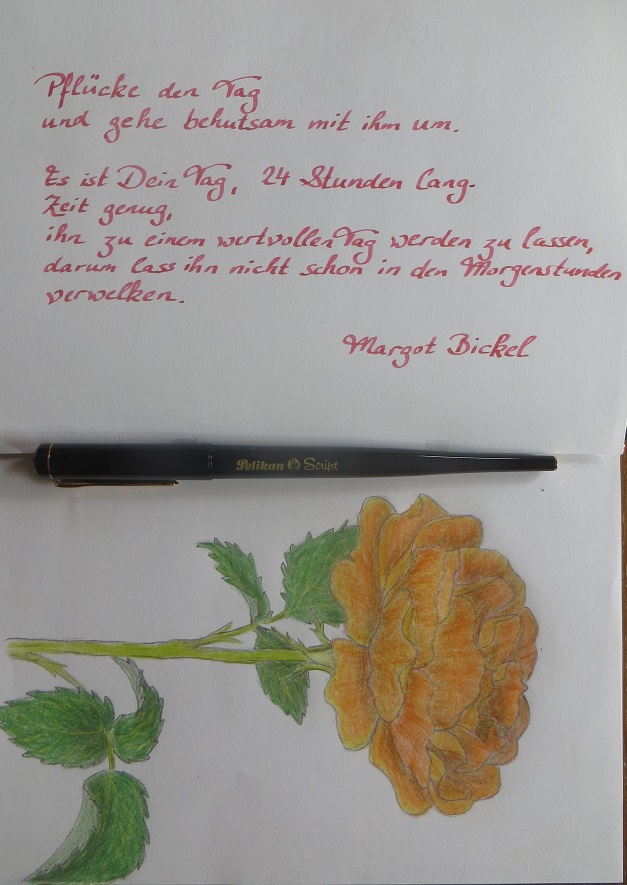 Pflücke den Tag
und gehe behutsam mit ihm um.
Es ist Dein Tag, 24 Stunden lang.
Zeit genug,
ihn zu einem wertvollen Tag werden zu lassen,
darum lass ihn nicht schon in den Morgenstunden
verwelken.
Margot Bickel
Pelikan Script